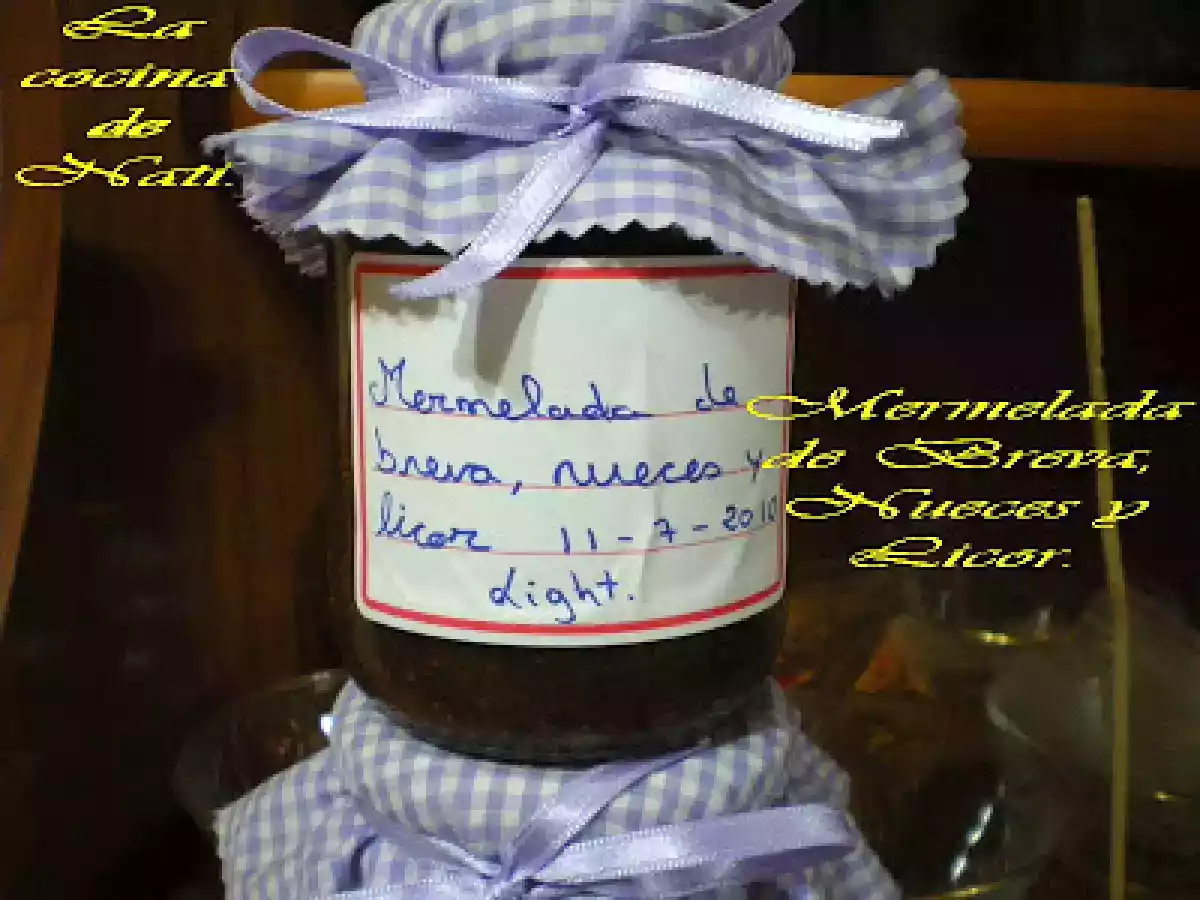 La
cocina
de
Nati.
Mermelada de
breva, nueces y
licor 11-7-2010
Light.
Mermelada
de Breva,
Nueces y
Licor.